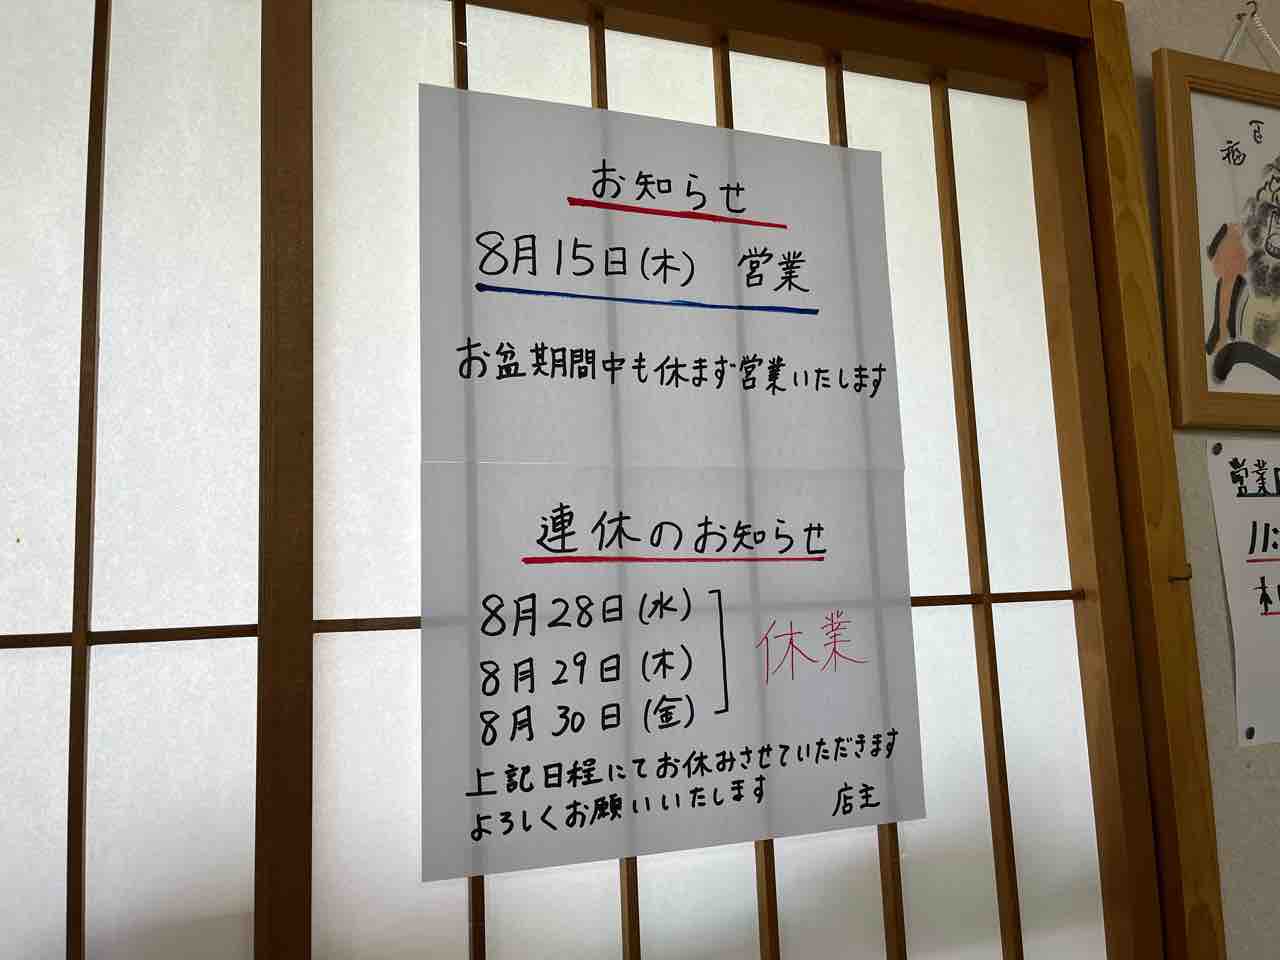 お知らせ
8月15日(木) 営業
お盆期間中も休まず営業いたします
連休のお知らせ
8月28日(水)
8月29日(木)
8月30日(金)
休業
上記日程にてお休みさせていただきます
よろしくお願いいたします
店主
営業
11: